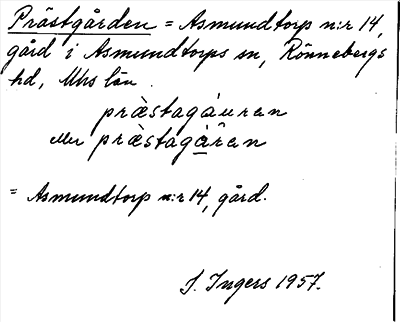 Prästgården = Asmundtorp n:r 14,
gård i Asmundtorps sn, Rönnebergs
hd, Mhs län.
præ̀stagáuren
eller præ̀stagå̂ren
= Asmundtorp n:r 14, gård.
I. Ingers 1957.